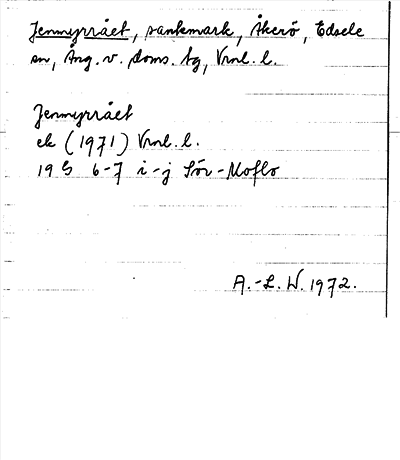 Jenmyrrået, sankmark, Åkerö, Edsele
sn, Ång. v. doms. tg, Vnl. l.
Jenmyrrået
ek (1971) Vnl. l.
19 G 6-7 i-j Sör-Moflo
A.-L. W. 1972.